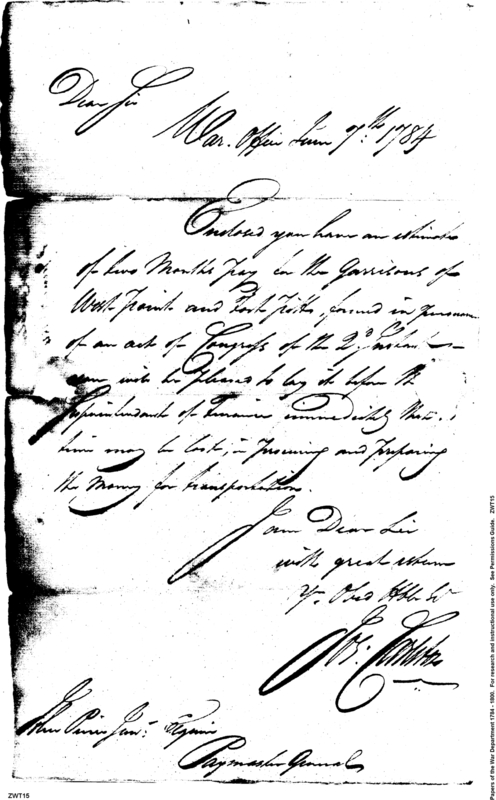 Dear Sir
War Office June 7th 1784
Enclosed you have an estimate
of two Months pay for the Garrisons of
West Point and Fort Pitt, formed in pursuance
of an act of Congress of the 2d Instant—
you will be pleased to lay it before the
Superintendant of Finance immediately that
time may be lost, in procuring and preparing
the Money for transportation.
I am Dear Sir
with great esteem
Yr Obed Hble St
Jos: Carleton
John Pierce Junr Esquire
Paymaster General
ZWT15
Papers of the War Department 1784 - 1800. For research and instructional use only. See Permissions Guide. ZWT15